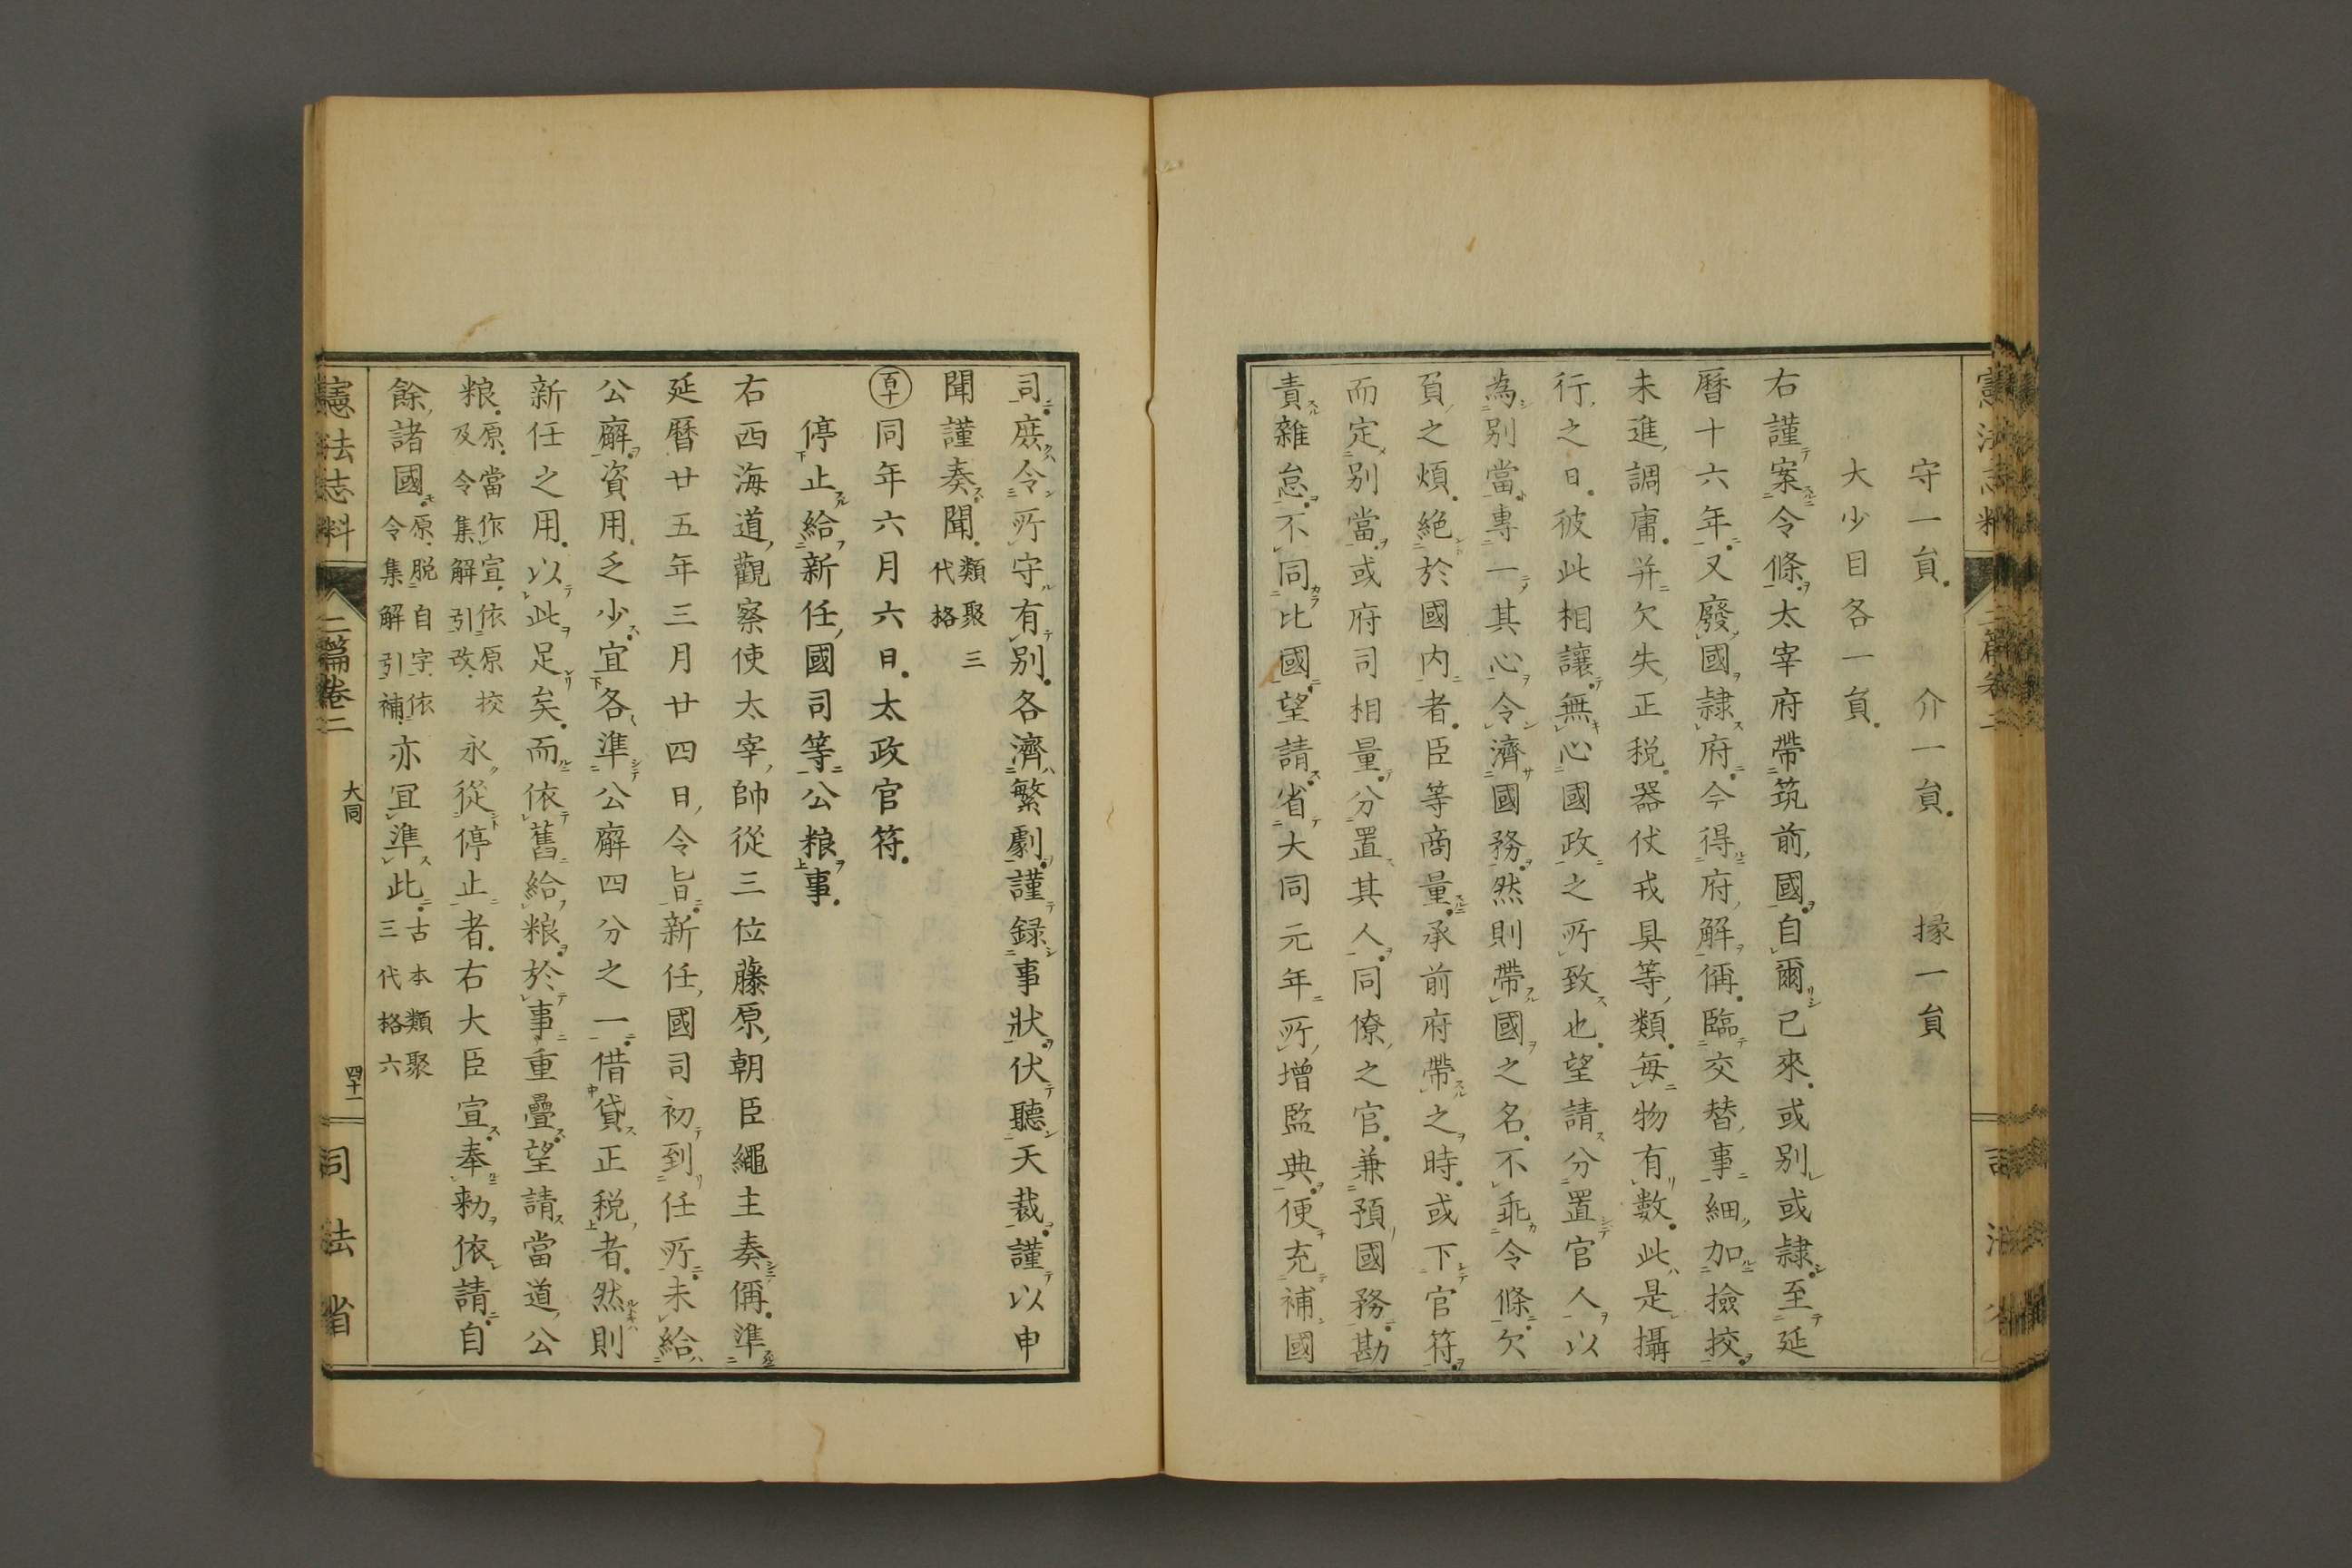 守一員。介一員。掾一員
大少目各一員。
右謹案令條太宰府帶筑前國自爾已來。或別或隷至延
曆十六年又廢國隷府今得府解偁。臨交替事細加撿挍
未進調庸。并欠失正税。器仗戎具等類。每物有數。此是攝
行之日。彼此相讓。無心國政之所致也。望請分置官人以
為別當專一其心令濟國務。然則帶國之名。不乖令條欠
負之煩。絕於國内者。臣等商量。承前府帶之時。或下官符。
而定別當。或府司相量。分置其人。同僚之官。兼預國務勘
責雜怠。不同比國望請省大同元年所增監典。便充補國
司。庶令所守有別。各濟繁劇。謹録事狀。伏聽天裁。謹以申
聞謹奏聞。類聚三代格
百十 同年六月六日。太政官符。
停止給新任國司等公粮事。
右西海道觀察使太宰帥從三位藤原朝臣繩主奏偁。準
延曆廿五年三月廿四日令旨新任國司初到任所未給
公廨資用乏少宜各準公廨四分之一借貸正税者。然則
新任之用。以此足矣。而依舊給粮於事重疊望請當道公
粮。原。當作宣。依原挍及令集解引改。永從停止者。右大臣宣奉勅依請自
餘諸國原。脱自字。依令集解引補。亦宜準此。古本類聚三代格六
憲法志料 二篇卷二 大同 四十一 司法省